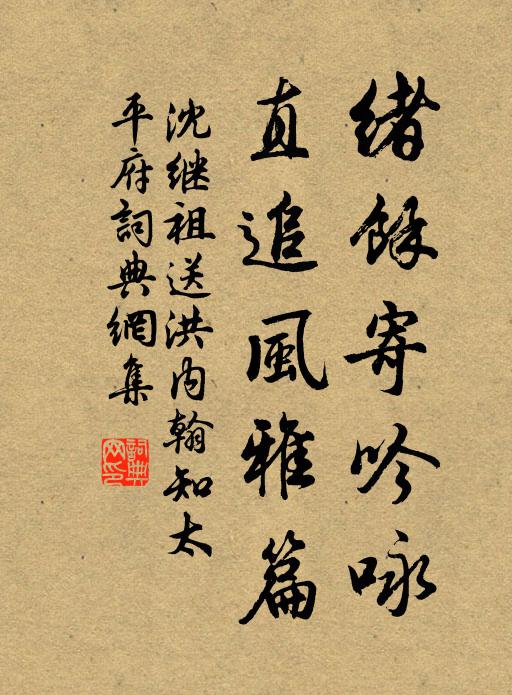 緒餘寄吟咏
直追風雅篇
沈继祖送洪内翰知太
平府詞典網集
詞典網印